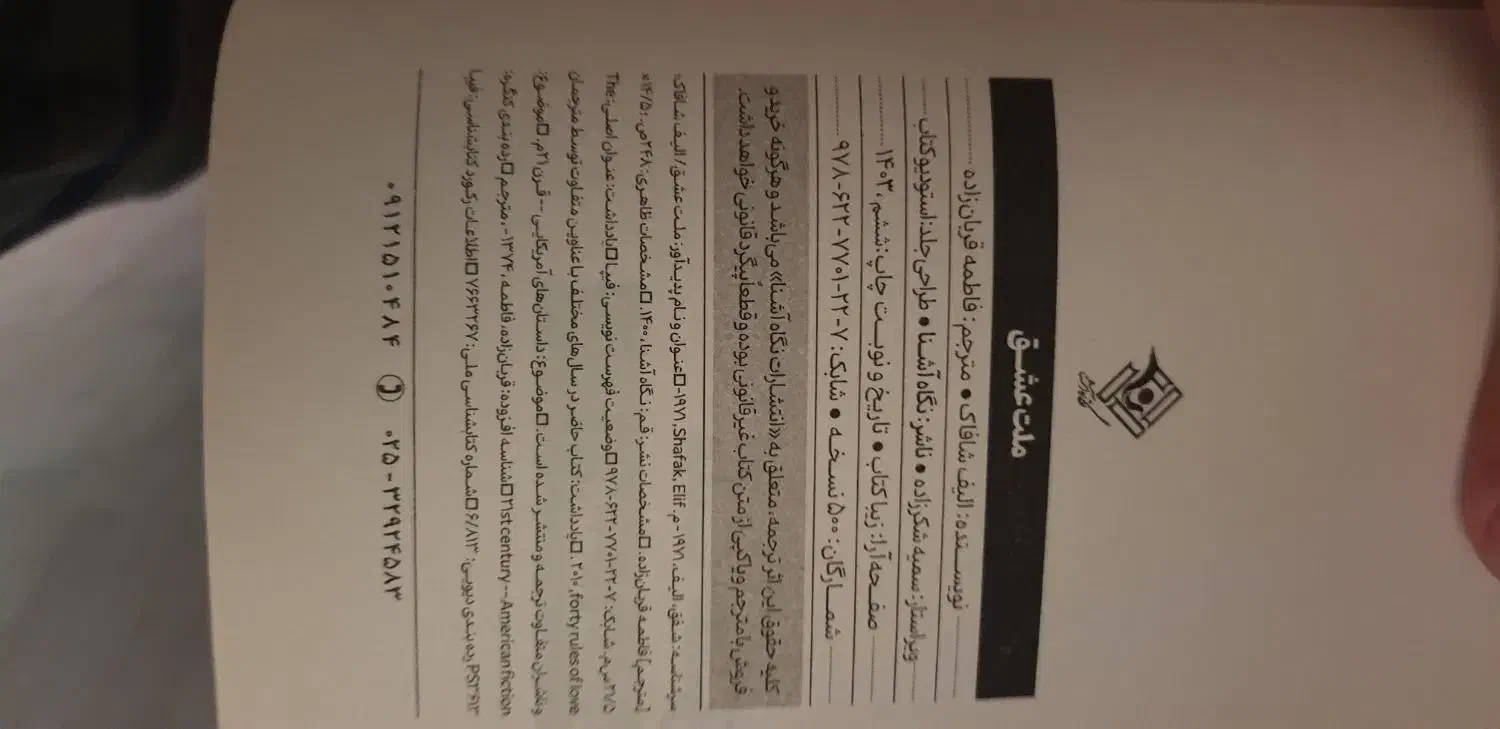 ملت عشق
نویسنده: الیف شافاک ● مترجم: فاطمه قربان‌زاده
ویراستار: سمیه شکرزاده ● ناشر: نگاه آشنا ● طراحی جلد: استودیو کتاب
صفحه‌آرا: زیبا کتاب ● تاریخ و نوبت چاپ: ششم، ۱۴۰۳
شمارگان: ۵۰۰ نسخه ● شابک: ۷-۲۲-۷۷۰۱-۶۲۲-۹۷۸
کلیه حقوق این اثر ترجمه، متعلق به «انتشارات نگاه آشنا» می‌باشد و هرگونه خرید و
فروش با مترجم و یا کپی از متن کتاب غیرقانونی بوده و قطعاً پیگرد قانونی خواهد داشت.
سرشناسه: شفق، الیف، ۱۹۷۱ - م. Shafak, Elif، ۱۹۷۱- □عنوان و نام پدیدآور: ملت عشق/ الیف شافاک؛
[مترجم] فاطمه قربان‌زاده. □مشخصات نشر: قم: نگاه آشنا، ۱۴۰۰. □مشخصات ظاهری: ۲۴۸ص.؛ ۱۴/۵×
۲۱/۵ س‌م. شابک: ۷-۲۲-۷۷۰۱-۶۲۲-۹۷۸ □وضعیت فهرست نویسی: فیپا □یادداشت: عنوان اصلی: The
forty rules of love, ۲۰۱۰. □یادداشت: کتاب حاضر در سال‌های مختلف با عناوین متفاوت توسط مترجمان
و ناشران متفاوت ترجمه و منتشر شده است. □موضوع: داستان‌های آمریکایی -- قرن ۲۱م. □موضوع:
American fiction -- ۲۱st century □شناسه افزوده: قربان‌زاده، فاطمه، ۱۳۷۴-، مترجم □رده بندی کنگره:
PS۳۶۱۳ رده بندی دیویی: ۸۱۳/۶ □شماره کتابشناسی ملی: ۷۶۶۳۲۶۷ □اطلاعات رکورد کتابشناسی: فیپا
۰۹۱۲۱۵۱۰۴۸۴ ۰۲۵ - ۳۲۹۲۴۵۸۳